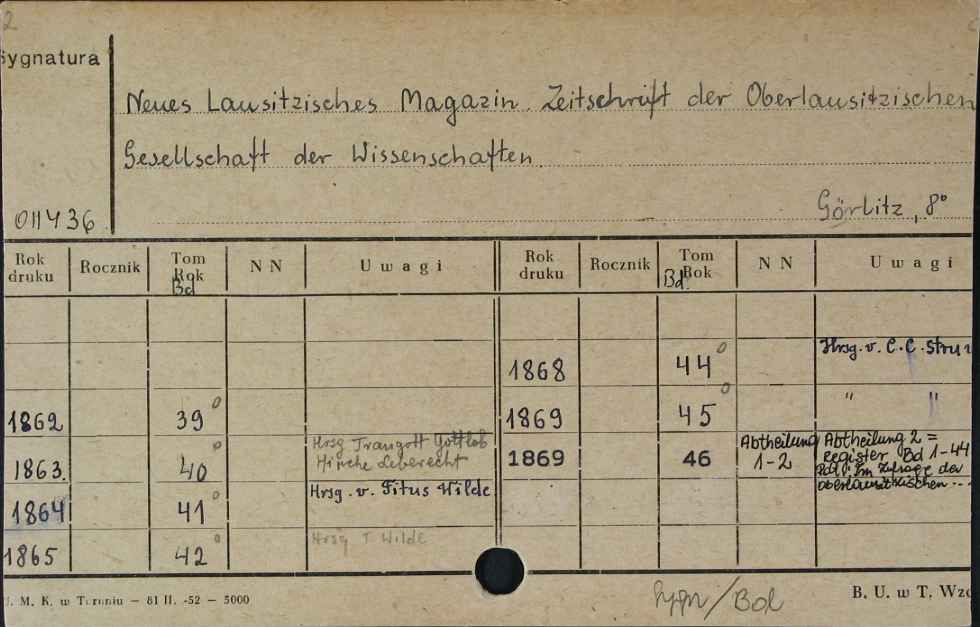 2
Sygnatura
Neues Lausitzisches Magazin. Zeitschrift der Oberlausitzischen
Gesellschaft der Wissenschaften.
011436
Görlitz, 8°
Rok druku Rocznik Tom Rok Bd NN Uwagi Rok druku Rocznik Tom Rok Bd. NN Uwagi
1868 44° Hrsg. v. C. C. Struv
1862 39° 1869 45° " "
1863. 40° Hrsg Traugott Gottlob Hirche Leberecht 1869 46 Abtheilung 1-2 Abtheilung 2 = Register Bd 1-44 Im der oberlausitzischen...
1864 41° Hrsg. v. Titus Wilde
1865 42° Hrsg T. Wilde
U. M. K. w Toruniu — 81 II. -52 — 5000
Sygn/Bd
B. U. w T. Wzó